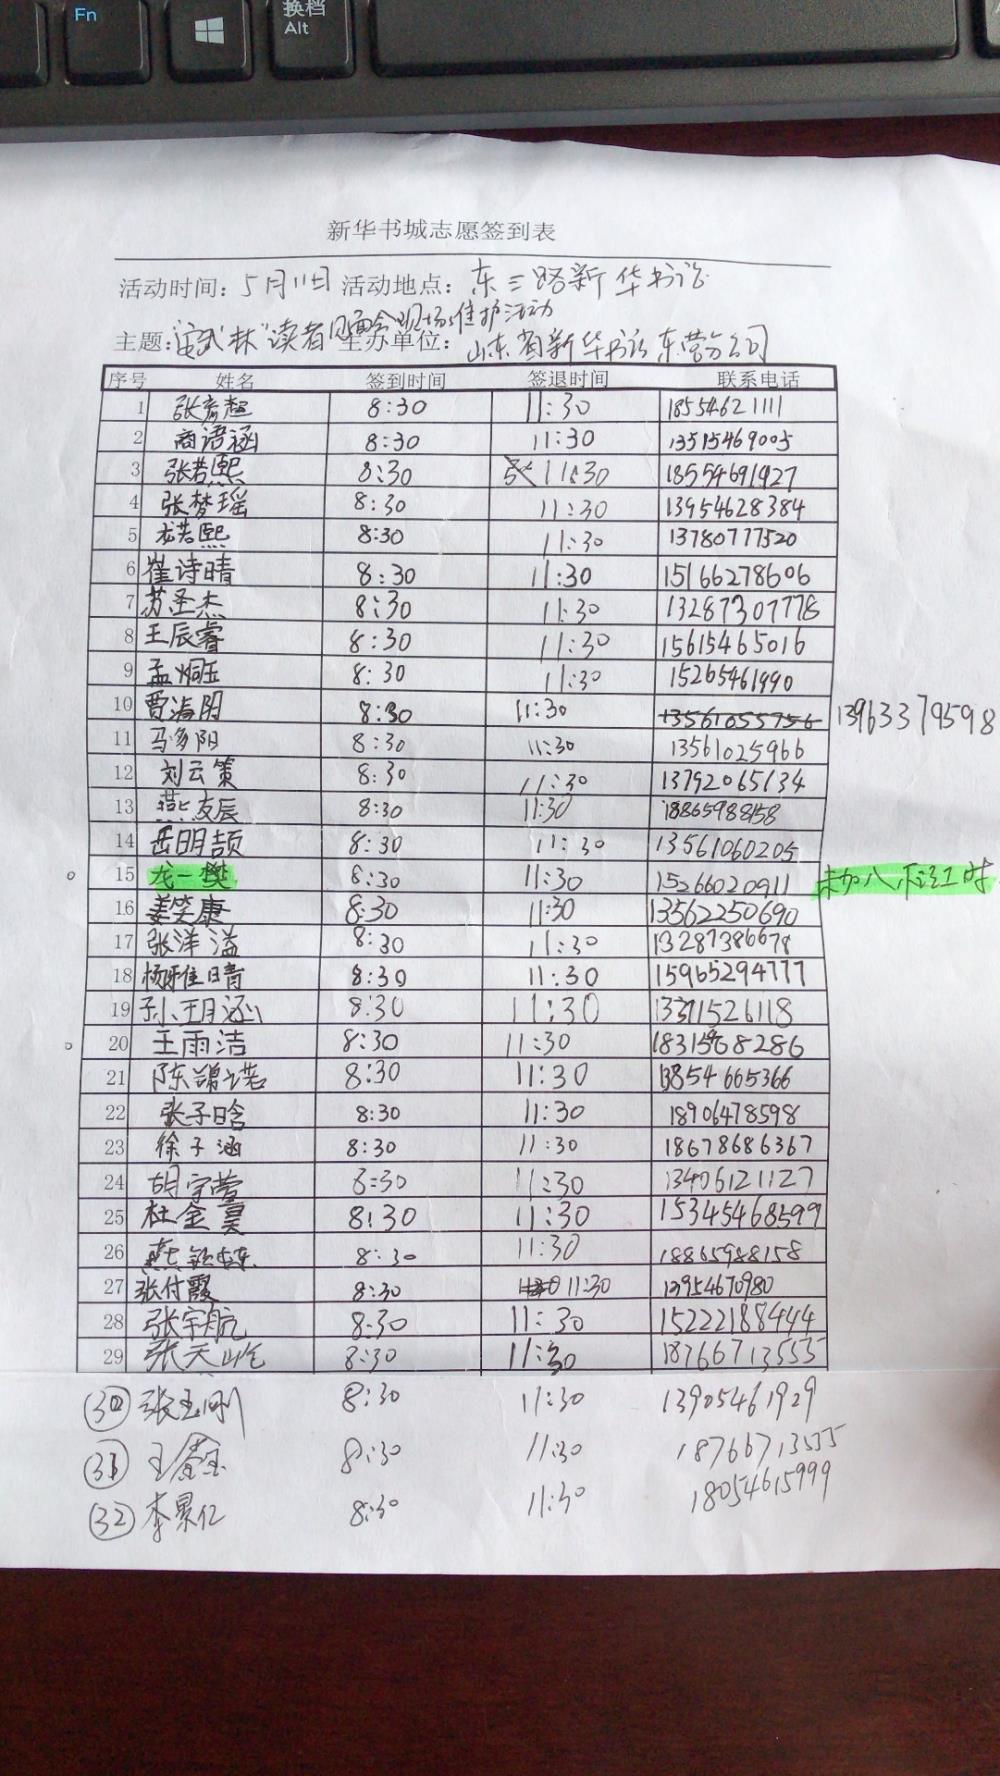 Fn
换档
Alt
新华书城志愿签到表
活动时间: 5月11日 活动地点: 东三路新华书店
主题: 读者见面会现场维护活动
主办单位: 山东省新华书店东营分公司
序号 姓名 签到时间 签退时间 联系电话
1 张彦超 8:30 11:30 18554621111
2 商语涵 8:30 11:30 13515469005
3 张若熙 8:30 11:30 18554691927
4 张梦瑶 8:30 11:30 13954628384
5 尤若熙 8:30 11:30 13780777520
6 崔诗晴 8:30 11:30 15166278606
7 苏圣杰 8:30 11:30 13287307778
8 王辰睿 8:30 11:30 15615465016
9 孟炯玉 8:30 11:30 15265461990
10 贾海阳 8:30 11:30 13561055756 13963379598
11 马多阳 8:30 11:30 13561025966
12 刘云策 8:30 11:30 13792065134
13 燕友辰 8:30 11:30 18865988158
14 岳明颉 8:30 11:30 13561060205
15 龙一樊 8:30 11:30 15266020911 未加入不经工时
16 姜笑康 8:30 11:30 13562250690
17 张洋溢 8:30 11:30 13287386678
18 杨雅晴 8:30 11:30 15965294777
19 孙玥涵 8:30 11:30 13371526118
20 王雨洁 8:30 11:30
21 陈锦诺 8:30 11:30 13854665366
22 张子晗 8:30 11:30 18906478598
23 徐子涵 8:30 11:30 18678686367
24 胡宇萱 8:30 11:30 13406121127
25 杜金昊 8:30 11:30 15345468599
26 燕钦栋 8:30 11:30 18865988158
27 张付霞 8:30 11:30 13954670980
28 张宇航 8:30 11:30 15222188444
29 张天屹 8:30 11:30 18766713555
(30) 张玉刚 8:30 11:30 13905461929
(31) 王 8:30 11:30 18766713555
(32) 李景仁 8:30 11:30 18054615999